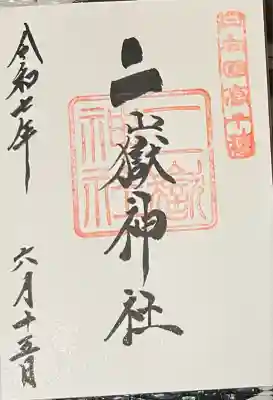 二嶽神社
二嶽
神社
令和七年
六月十五日